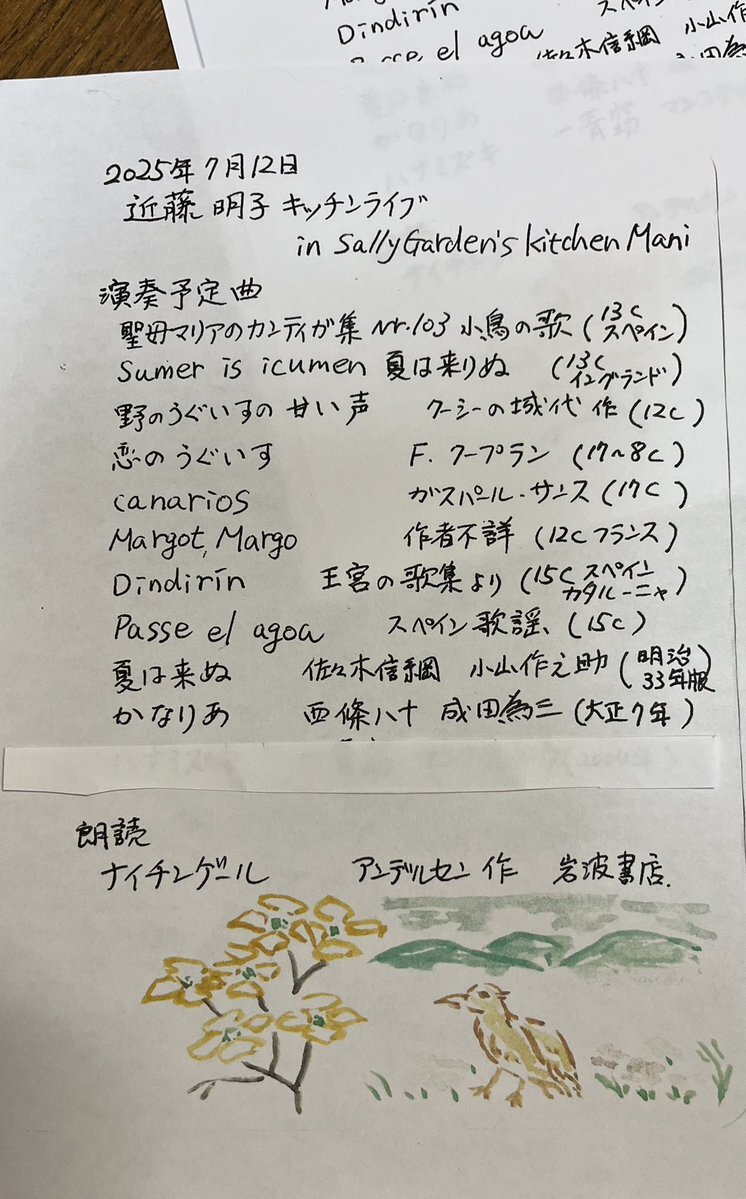 Dindirín スペイン
Passe el agoa 佐々木信綱 小山作
成田為
2025年7月12日
近藤 明子 キッチンライブ
in SallyGarden's kitchen Mani
演奏予定曲
聖母マリアのカンティガ集 Nr.103 小鳥の歌 (13c スペイン)
Sumer is icumen 夏は来りぬ (13c イングランド)
野のうぐいすの甘い声 クーシーの城代 作 (12c)
恋のうぐいす F. クープラン (17~8c)
canarios ガスパール・サンス (17c)
Margot, Margo 作者不詳 (12c フランス)
Dindirín 王宮の歌集より (15c スペイン カタルーニャ)
Passe el agoa スペイン歌謡、(15c)
夏は来ぬ 佐々木信綱 小山作之助 (明治33年版)
かなりあ 西條八十 成田為三 (大正7年)
朗読
ナイチンゲール アンデルセン 作 岩波書店.